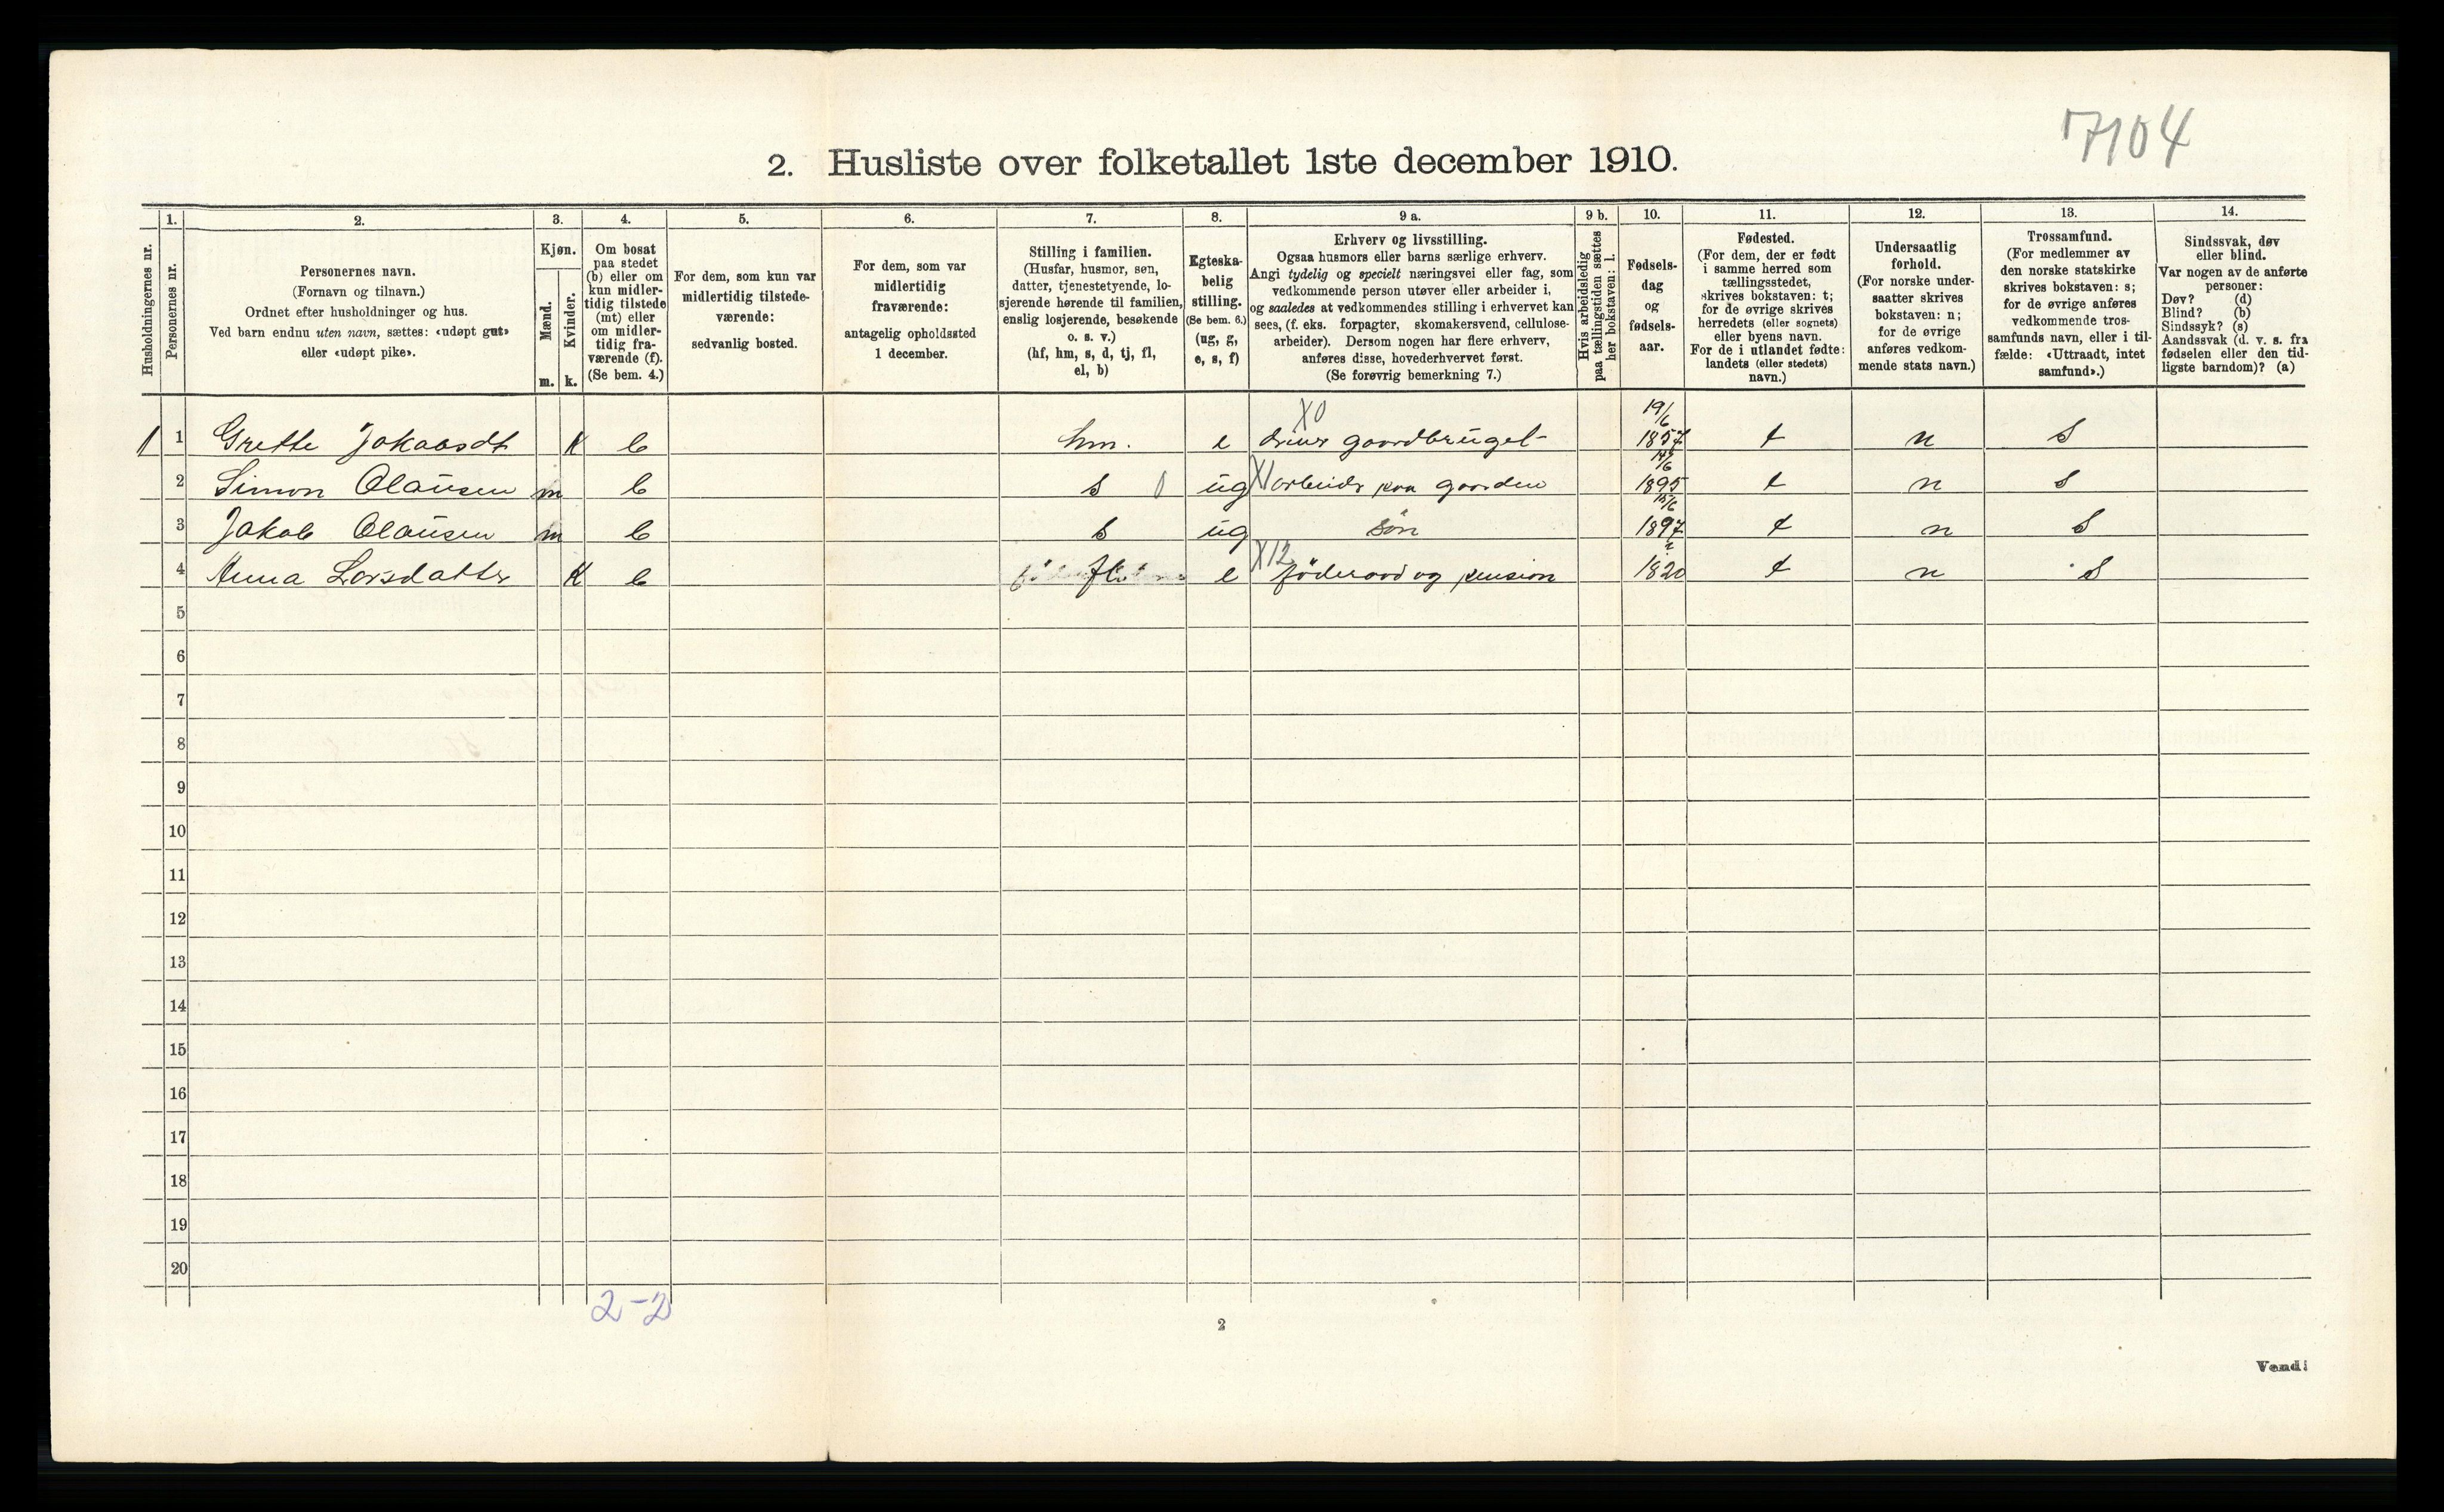 7104
2. Husliste over folketallet 1ste december 1910.
Husholdningernes nr.
1.
Personernes nr.
2.
Personernes navn.
(Fornavn og tilnavn.)
Ordnet efter husholdninger og hus.
Ved barn endnu uten navn, sættes: «udøpt gut»
eller «udøpt pike».
3.
Kjøn.
Mænd.
Kvinder.
m. k.
4.
Om bosat
paa stedet
(b) eller om
kun midler-
tidig tilstede
(mt) eller
om midler-
tidig fra-
værende (f).
(Se bem. 4.)
5.
For dem, som kun var
midlertidig tilstede-
værende:
sedvanlig bosted.
6.
For dem, som var
midlertidig
fraværende:
antagelig opholdssted
1 december.
7.
Stilling i familien.
(Husfar, husmor, søn,
datter, tjenestetyende, lo-
sjerende hørende til familien,
enslig losjerende, besøkende
o. s. v.)
(hf, hm, s, d, tj, fl,
el, b)
8.
Egteska-
belig
stilling.
(Se bem. 6.)
(ug, g,
e, s, f)
9 a.
Erhverv og livsstilling.
Ogsaa husmors eller barns særlige erhverv.
Angi tydelig og specielt næringsvei eller fag, som
vedkommende person utøver eller arbeider i,
og saaledes at vedkommendes stilling i erhvervet kan
sees, (f. eks. forpagter, skomakersvend, cellulose-
arbeider). Dersom nogen har flere erhverv,
anføres disse, hovederhvervet først.
(Se forøvrig bemerkning 7.)
9 b.
Hvis arbeidsledig
paa tællingstiden sættes
her bokstaven: l.
10.
Fødsels-
dag
og
fødsels-
aar.
11.
Fødested.
(For dem, der er født
i samme herred som
tællingsstedet,
skrives bokstaven: t;
for de øvrige skrives
herredets (eller sognets)
eller byens navn.
For de i utlandet fødte:
landets (eller stedets)
navn.)
12.
Undersaatlig
forhold.
(For norske under-
saatter skrives
bokstaven: n;
for de øvrige
anføres vedkom-
mende stats navn.)
13.
Trossamfund.
(For medlemmer av
den norske statskirke
skrives bokstaven: s;
for de øvrige anføres
vedkommende tros-
samfunds navn, eller i til-
fælde: «Uttraadt, intet
samfund».)
14.
Sindssvak, døv
eller blind.
Var nogen av de anførte
personer:
Døv? (d)
Blind? (b)
Sindssyk? (s)
Aandssvak (d. v. s. fra
fødselen eller den tid-
ligste barndom)? (a)
X0 19/6
1 1 Grethe Jakobsdt K b hm. e driver gaardbruget 1857 t n S
14/6
2 Simon Olausen m b s 0 ug X1 arbeider paa gaarden 1895 t n S
15/6
3 Jakob Olausen m b s ug søn 1897 t n S
X12
4 Anna Larsdatter K b fl e föderaad og pension 1820 t n S
5
6
7
8
9
10
11
12
13
14
15
16
17
18
19
20
2-2
2
Vend!